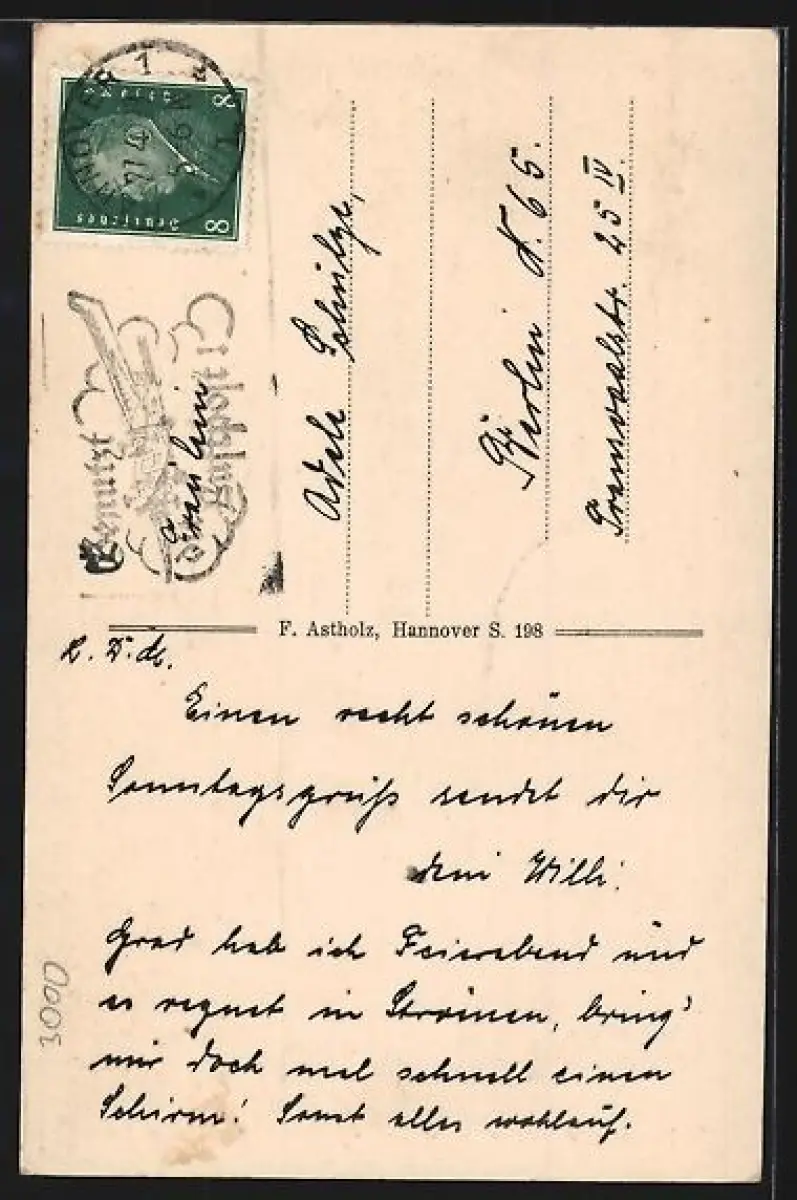 HANNOVER 1
Deutsches Reich
8 8
Fräulein
Adele Schulze,
Berlin N. 65.
Transvaalstr. 25 IV.
F. Astholz, Hannover S. 198
Einen recht schönen
Sonntagsgruß sendet dir
dein Willi.
Grad hab ich Feierabend und
es regnet in Strömen, bring'
mir doch mal schnell einen
Schirm! Sonst alles wohlauf.
3000